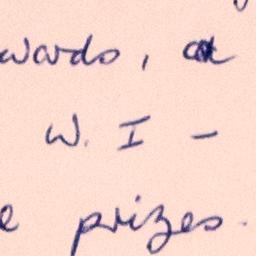 wards, at
W. I -
e prizes.